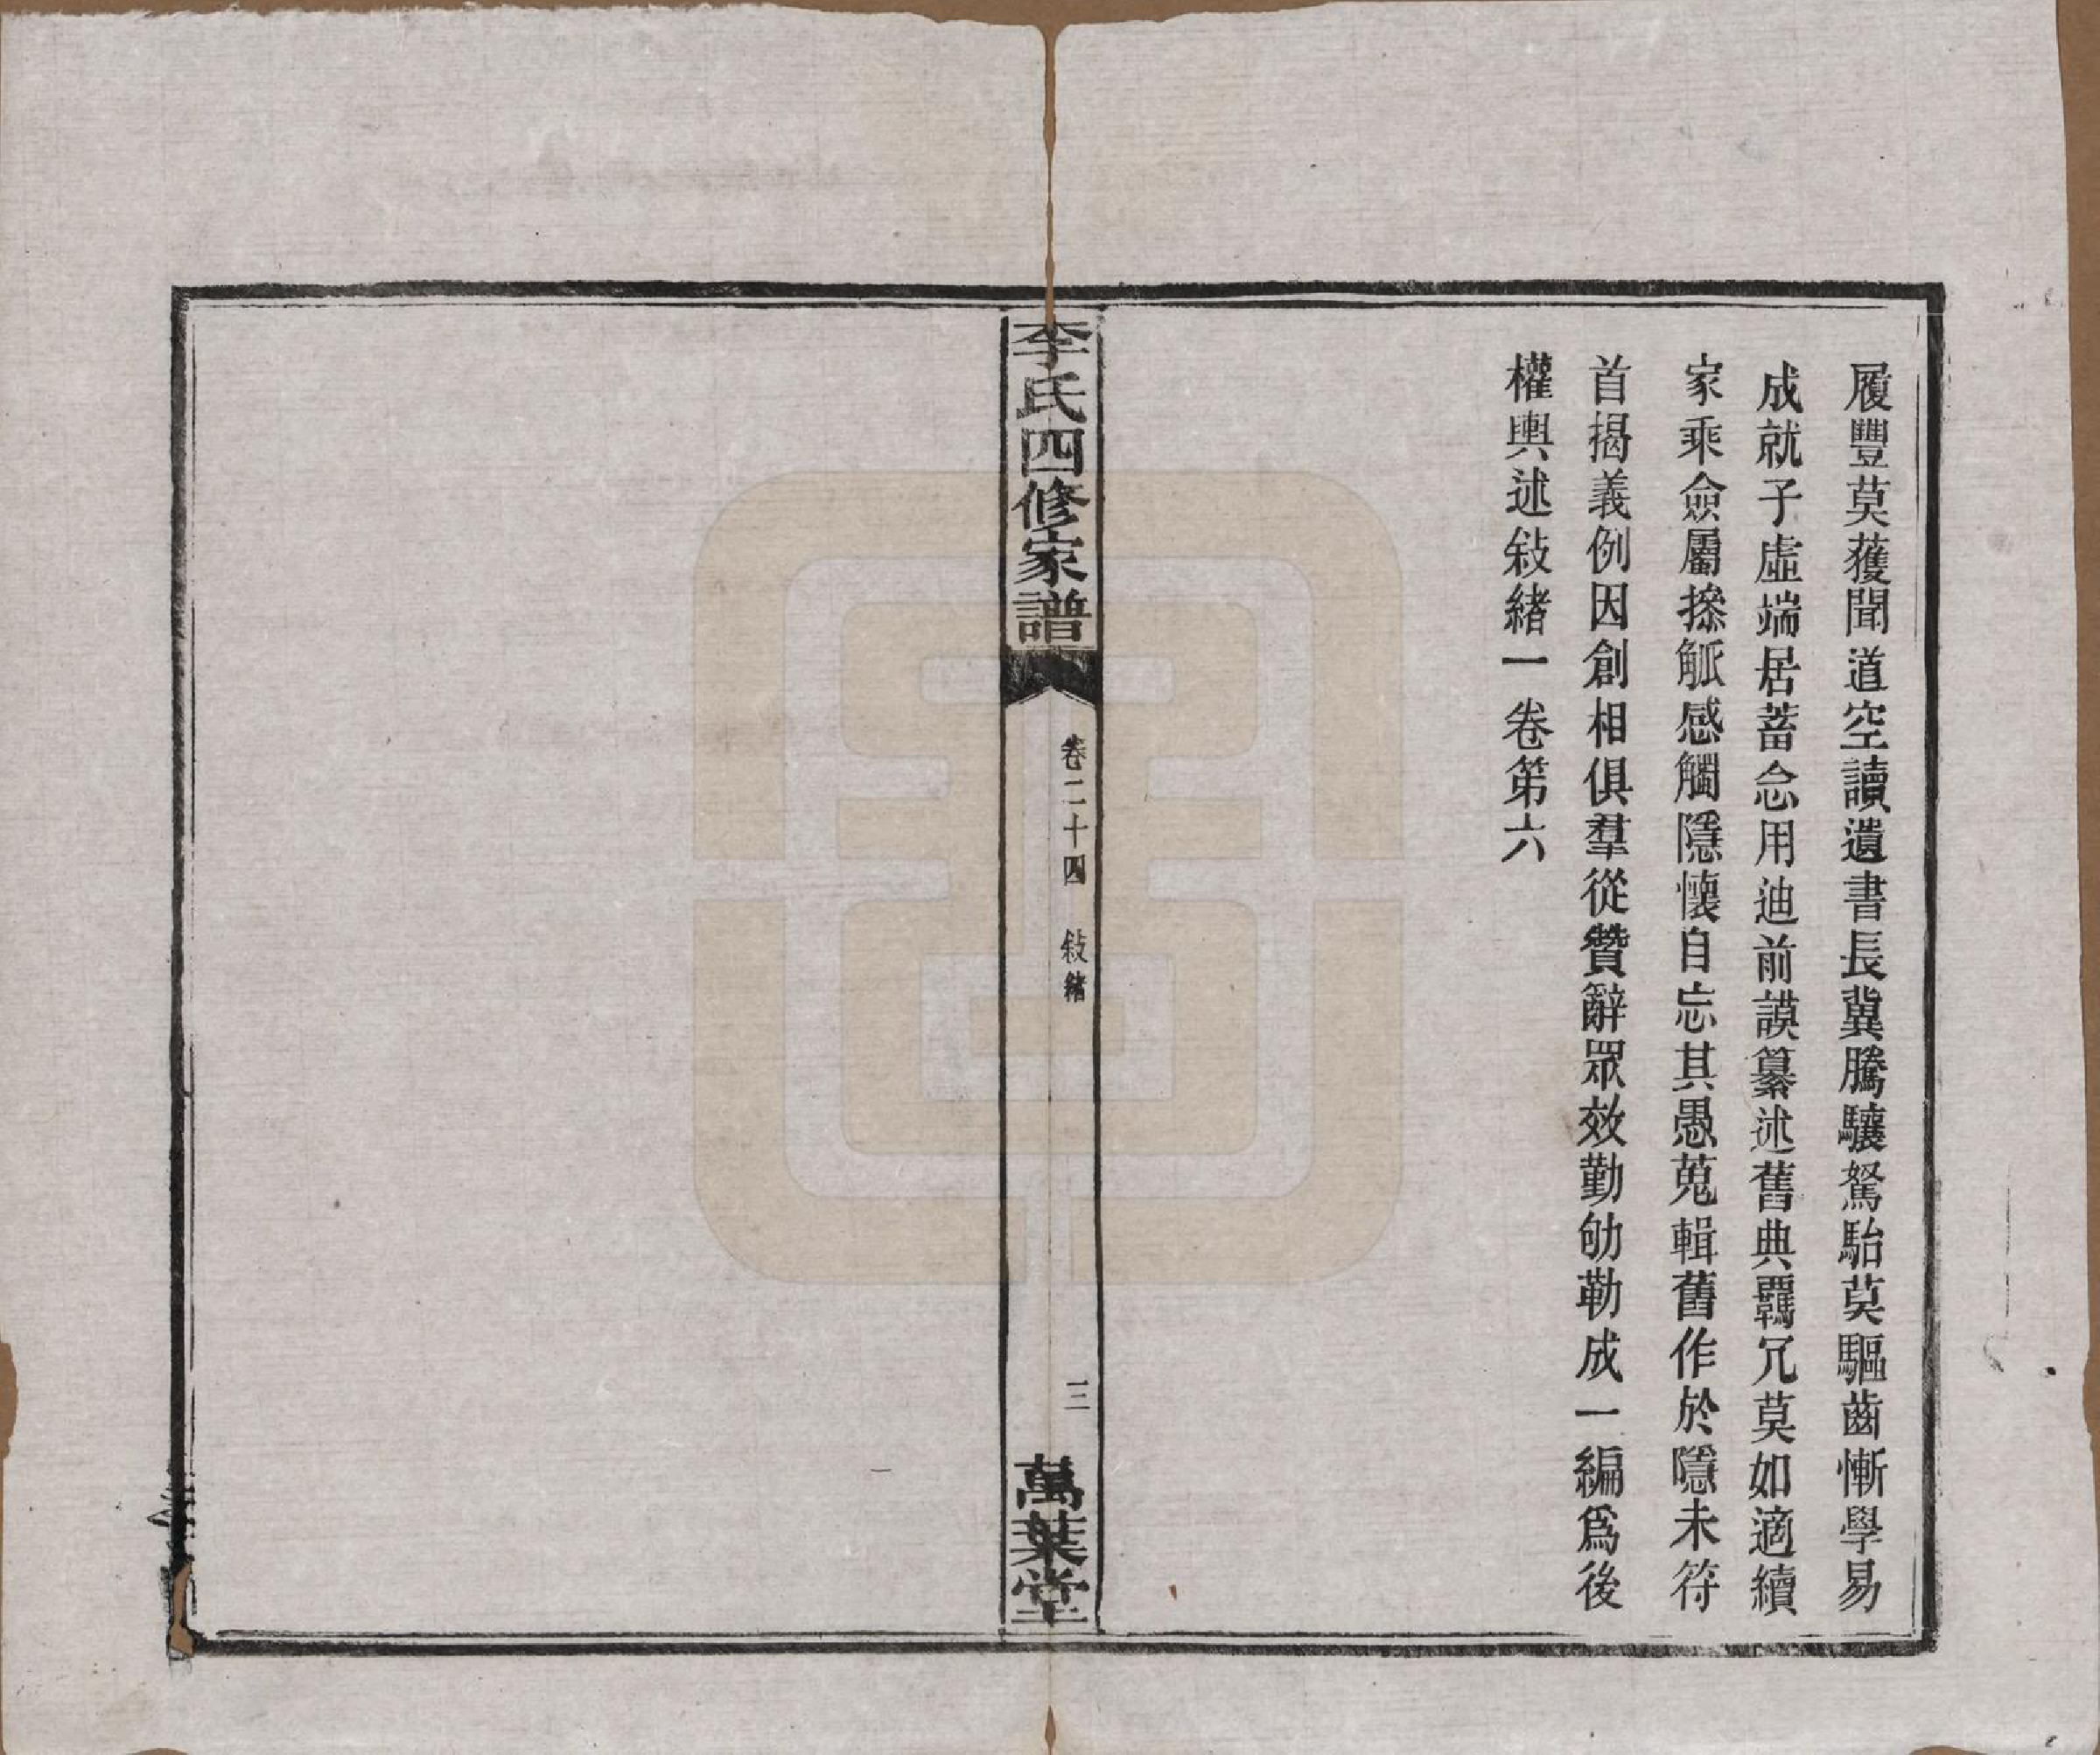 履豐莫獲聞道空讀遺書長冀騰驤駑駘莫驅齒慚學易
成就子虛端居蓄念用迪前謨纂述舊典羈冗莫如適續
家乘僉屬搽觚感觸隱懷自忘其愚蒐輯舊作於隱未符
首揭義例因創相俱羣從贊辭眾效勤劬勒成一編爲後
權輿述敍緒一卷第六
李氏四修家譜
卷二十四 敍緒
三
萬葉堂